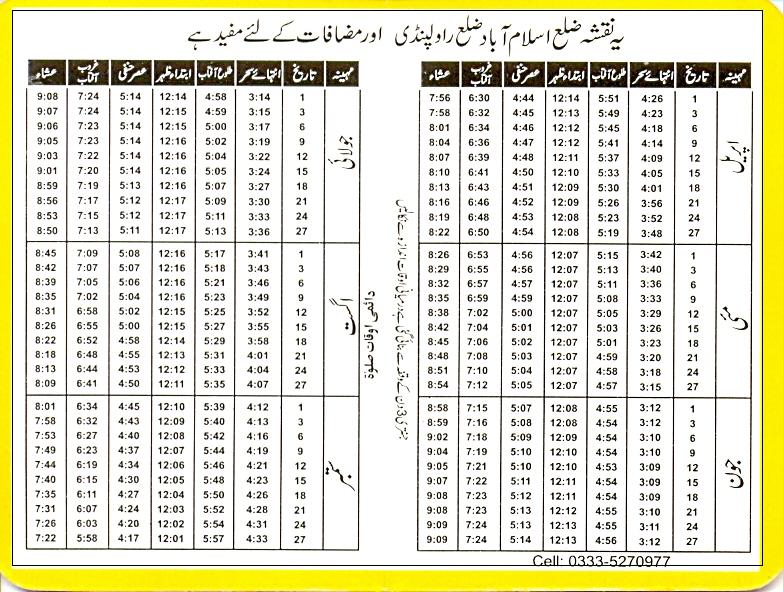 یہ نقشہ ضلع اسلام آباد ضلع راولپنڈی اور مضافات کے لئے مفید ہے
مہینہ تاریخ انتہائے سحر طلوع آفتاب ابتداء ظہر عصر حنفی غروب آفتاب عشاء
اپریل
1 4:26 5:51 12:14 4:44 6:30 7:56
3 4:23 5:49 12:13 4:45 6:32 7:58
6 4:18 5:45 12:12 4:46 6:34 8:01
9 4:14 5:41 12:12 4:47 6:36 8:04
12 4:09 5:37 12:11 4:48 6:39 8:07
15 4:05 5:33 12:10 4:50 6:41 8:10
18 4:01 5:30 12:09 4:51 6:43 8:13
21 3:56 5:26 12:09 4:52 6:46 8:16
24 3:52 5:23 12:08 4:53 6:48 8:19
27 3:48 5:19 12:08 4:54 6:50 8:22
مئی
1 3:42 5:15 12:07 4:56 6:53 8:26
3 3:40 5:13 12:07 4:56 6:55 8:29
6 3:36 5:11 12:07 4:57 6:57 8:32
9 3:33 5:08 12:07 4:59 6:59 8:35
12 3:29 5:05 12:07 5:00 7:02 8:38
15 3:26 5:03 12:07 5:01 7:04 8:42
18 3:23 5:01 12:07 5:02 7:06 8:45
21 3:20 4:59 12:07 5:03 7:08 8:48
24 3:18 4:58 12:07 5:04 7:10 8:51
27 3:15 4:57 12:07 5:05 7:12 8:54
جون
1 3:12 4:55 12:08 5:07 7:15 8:58
3 3:12 4:54 12:08 5:08 7:16 8:59
6 3:10 4:54 12:09 5:09 7:18 9:02
9 3:10 4:54 12:10 5:10 7:19 9:04
12 3:09 4:53 12:10 5:10 7:21 9:05
15 3:09 4:54 12:11 5:11 7:22 9:07
18 3:09 4:54 12:11 5:12 7:23 9:08
21 3:10 4:55 12:12 5:13 7:23 9:08
24 3:11 4:55 12:13 5:13 7:24 9:09
27 3:12 4:56 12:13 5:14 7:24 9:09
دائمی اوقات صلوٰۃ
مہینہ تاریخ انتہائے سحر طلوع آفتاب ابتداء ظہر عصر حنفی غروب آفتاب عشاء
جولائی
1 3:14 4:58 12:14 5:14 7:24 9:08
3 3:15 4:59 12:15 5:14 7:24 9:07
6 3:17 5:00 12:15 5:14 7:23 9:06
9 3:19 5:02 12:16 5:14 7:23 9:05
12 3:22 5:04 12:16 5:14 7:22 9:03
15 3:24 5:05 12:16 5:14 7:20 9:01
18 3:27 5:07 12:16 5:13 7:19 8:59
21 3:30 5:09 12:17 5:12 7:17 8:56
24 3:33 5:11 12:17 5:12 7:15 8:53
27 3:36 5:13 12:17 5:11 7:13 8:50
اگست
1 3:41 5:17 12:16 5:08 7:09 8:45
3 3:43 5:18 12:16 5:07 7:07 8:42
6 3:46 5:21 12:16 5:06 7:05 8:39
9 3:49 5:23 12:16 5:04 7:02 8:35
12 3:52 5:25 12:15 5:02 6:58 8:31
15 3:55 5:27 12:15 5:00 6:55 8:26
18 3:58 5:29 12:14 4:58 6:52 8:22
21 4:01 5:31 12:13 4:55 6:48 8:18
24 4:04 5:33 12:12 4:53 6:44 8:13
27 4:07 5:35 12:11 4:50 6:41 8:09
ستمبر
1 4:12 5:39 12:10 4:45 6:34 8:01
3 4:13 5:40 12:09 4:43 6:32 7:58
6 4:16 5:42 12:08 4:40 6:27 7:53
9 4:19 5:44 12:07 4:37 6:23 7:49
12 4:21 5:46 12:06 4:34 6:19 7:44
15 4:23 5:48 12:05 4:30 6:15 7:40
18 4:26 5:50 12:04 4:27 6:11 7:35
21 4:28 5:52 12:03 4:24 6:07 7:31
24 4:31 5:54 12:02 4:20 6:03 7:26
27 4:33 5:57 12:01 4:17 5:58 7:22
Cell: 0333-5270977